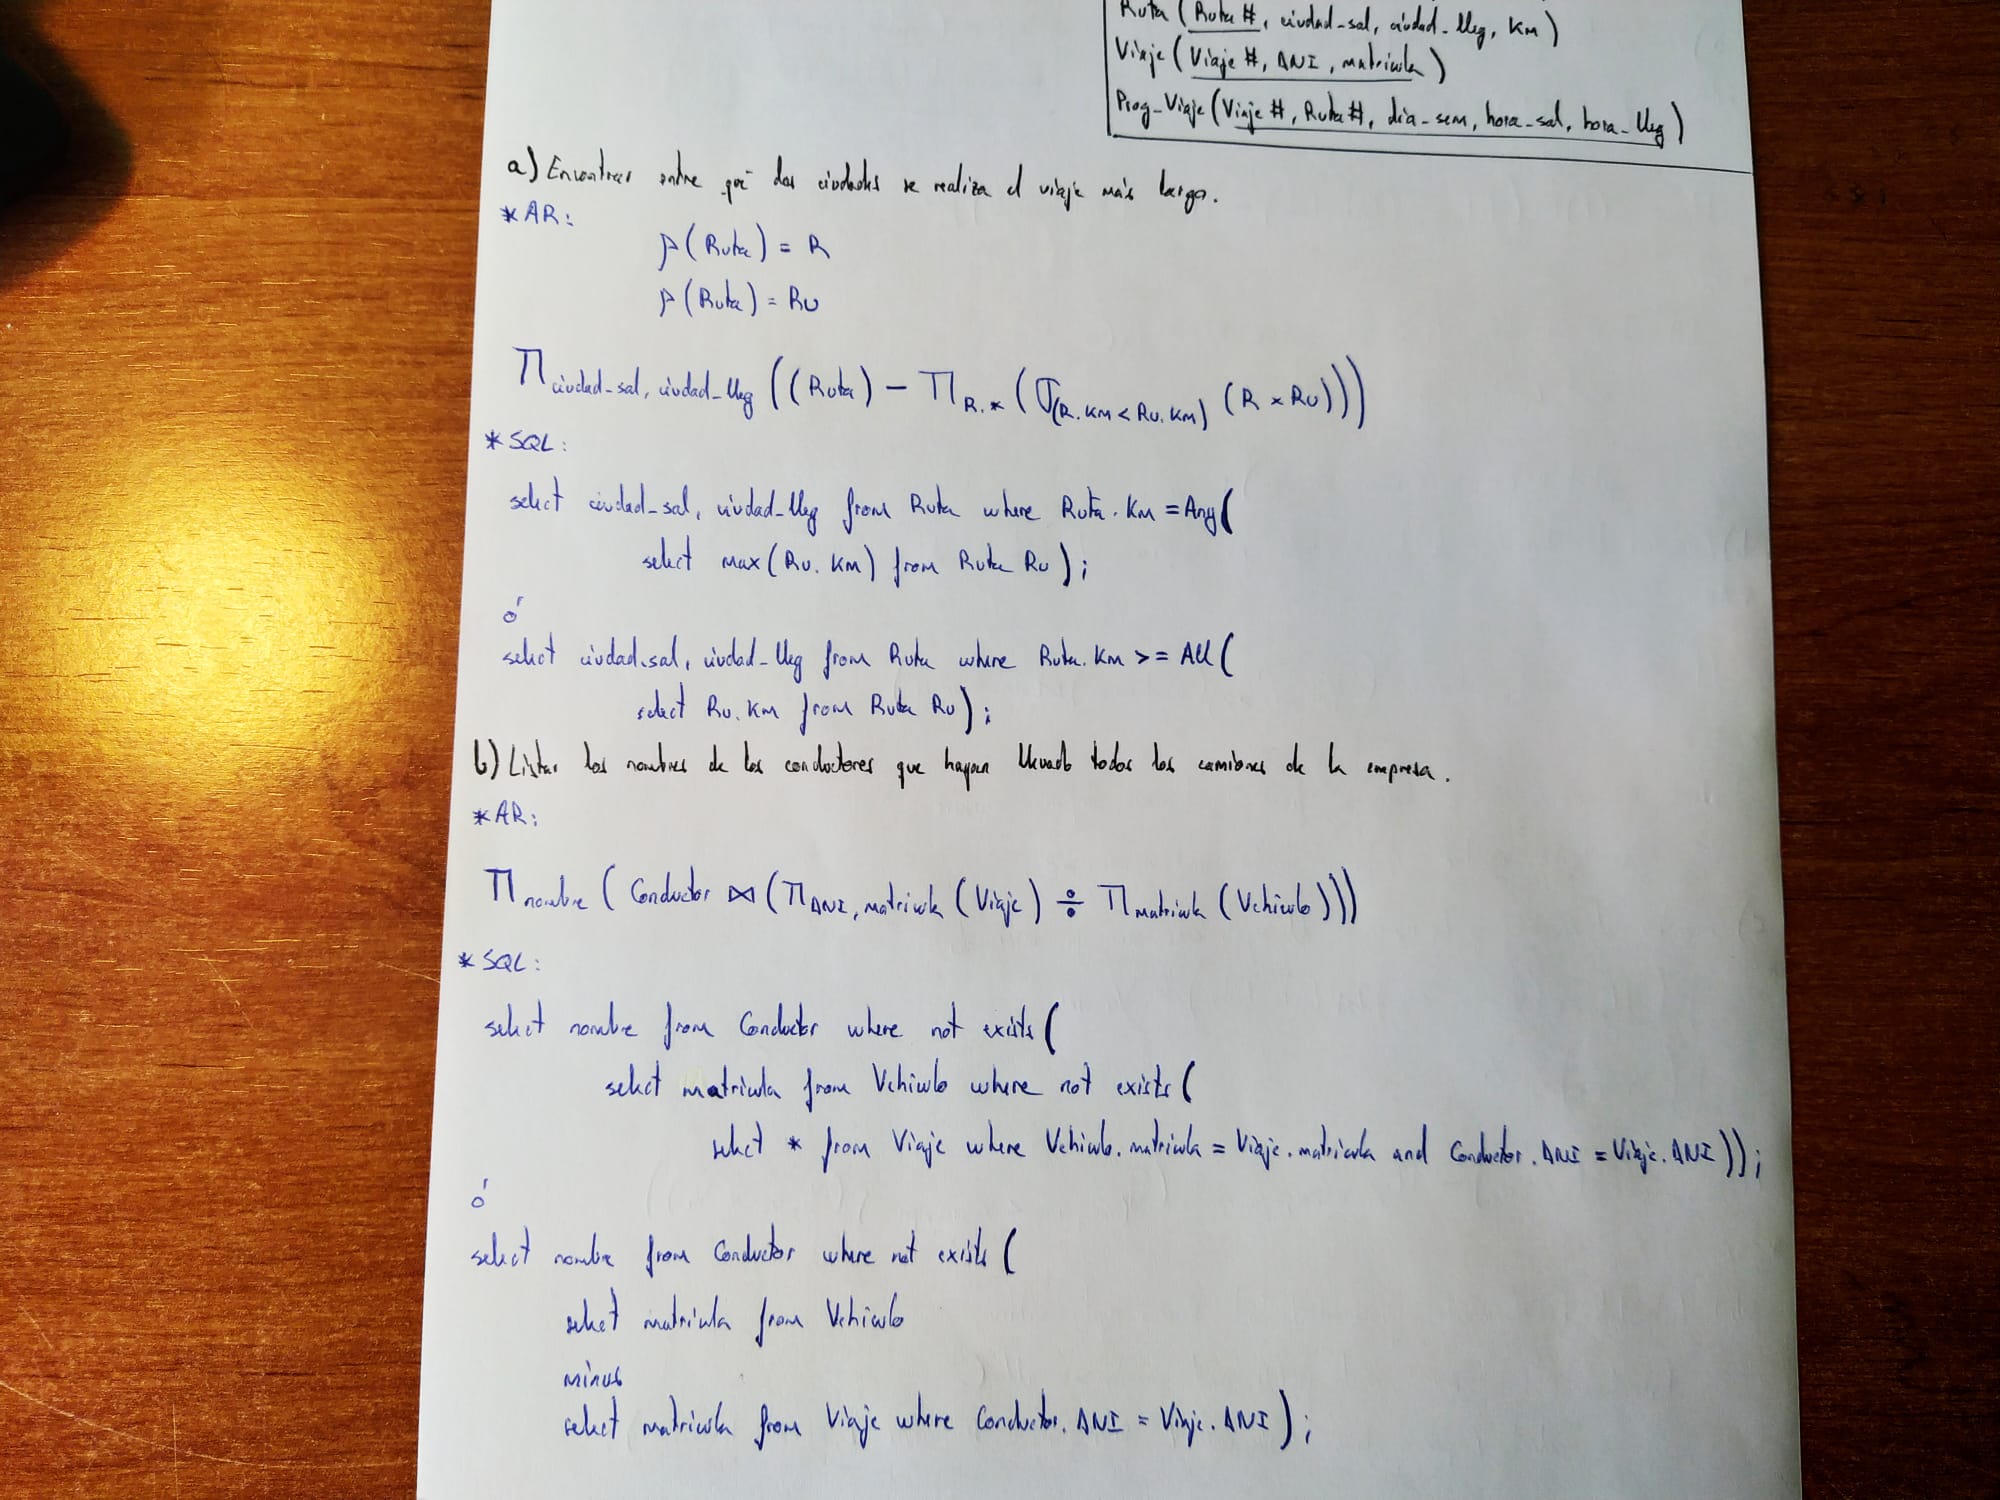 Ruta (Ruta #, ciudad-sal, ciudad-lleg, Km)
Viaje (Viaje #, DNI, matricula)
Prog-Viaje (Viaje #, Ruta #, dia-sem, hora-sal, hora-lleg)
a) Encontrar entre qué dos ciudades se realiza el viaje más largo.
* AR:
ρ (Ruta) = R
ρ (Ruta) = Ru
Π ciudad-sal, ciudad-lleg ((Ruta) - Π R.* (σ (R.KM < Ru.KM) (R × Ru)))
* SQL:
select ciudad-sal, ciudad-lleg from Ruta where Ruta.Km = Any(
select max(Ru.KM) from Ruta Ru);
ó
select ciudad-sal, ciudad-lleg from Ruta where Ruta.Km >= All(
select Ru.KM from Ruta Ru);
b) Listar los nombres de los conductores que hayan llevado todos los camiones de la empresa.
* AR:
Π nombre (Conductor ⋈ (Π DNI, matricula (Viaje) ÷ Π matricula (Vehiculo)))
* SQL:
select nombre from Conductor where not exists(
select matricula from Vehiculo where not exists(
select * from Viaje where Vehiculo.matricula = Viaje.matricula and Conductor.DNI = Viaje.DNI));
ó
select nombre from Conductor where not exists(
select matricula from Vehiculo
minus
select matricula from Viaje where Conductor.DNI = Viaje.DNI);